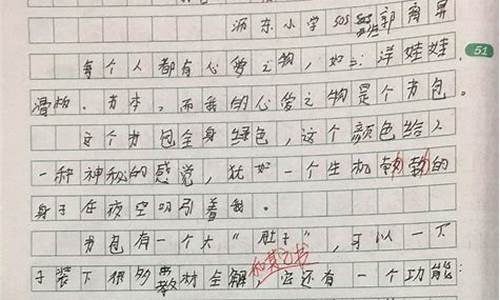 沥东小学505班郭育昇
51
每个人都有心爱之物,如:洋娃娃,
滑板.书本,而我的心爱之物是个书包。
这个书包全身绿色,这个颜色给人
一种神秘的感觉,犹如一个生机勃勃的
身子在夜空吸引着我。
书包有一个大"肚子",可以一下
子装下很多教材全解和其它书它还有一个功能